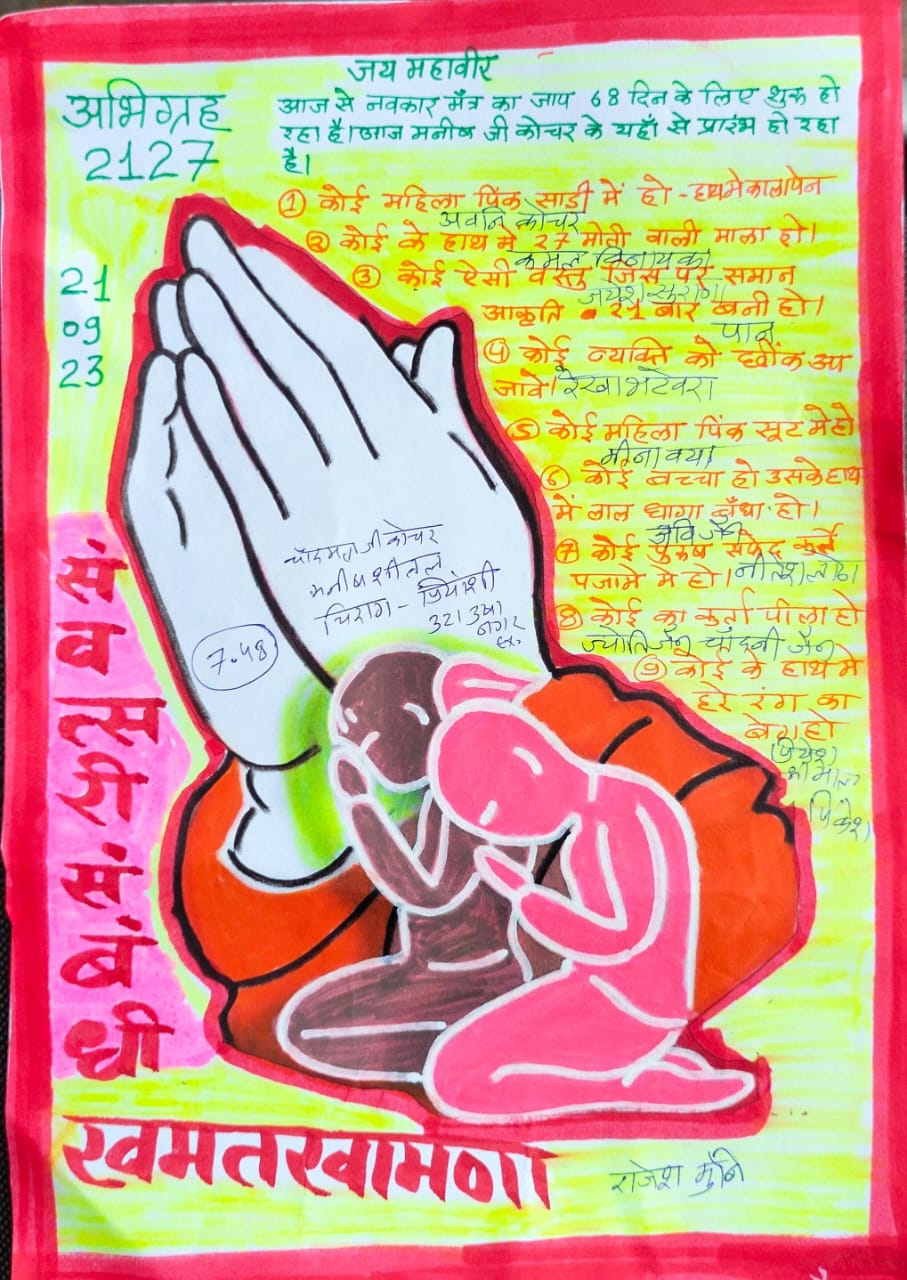 जय महावीर
अभिग्रह
2127
आज से नवकार मँत्र का जाप 68 दिन के लिए शुरू हो
रहा है। आज मनीष जी कोचर के यहाँ से प्रारंभ हो रहा
है।
21
09
23
① कोई महिला पिंक साडी में हो - हाथमे कालापेन
अवनि कोचर
② कोई के हाथ मे 27 मोती वाली माला हो।
कमल विनायका
③ कोई ऐसी वस्तु जिस पर समान
जयेश सुराणा
आकृति 21 बार बनी हो।
पान
④ कोई व्यक्ति को छींक आ
जावे। रेखा भटेवरा
⑤ कोई महिला पिंक सूट मे हो
मीना वया
⑥ कोई बच्चा हो उसके हाथ
में लाल धागा बँधा हो।
अवि जैन
⑦ कोई पुरुष सफेद कुर्ते
पजामे मे हो। नीतेश
⑧ कोई का कुर्ता पीला हो
ज्योति जैन चाँदनी जैन
⑨ कोई के हाथ मे
हरे रंग का
बेग हो
श्रीमाल
चाँदमल जी कोचर
मनीष शीतल
चिराग - प्रियांशी
321 उषा
नगर
7.48
सं
व
त्स
री
सं
बं
धी
खमतखामणा
राजेश मुनि